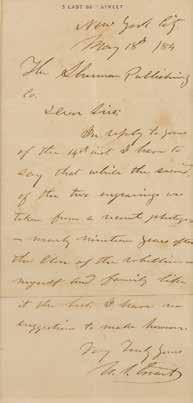 3 EAST 66TH STREET
New York City
May 18th 1884
The Sherman Publishing
Co.
Dear Sirs:
In reply to yours
of the 14th inst I have to
say that while the second
of the two engravings was
taken from a recent photograph
– nearly nineteen years after
the close of the rebellion –
myself and family like
it the best. I have no
suggestion to make however.
Very Truly Yours
U. S. Grant